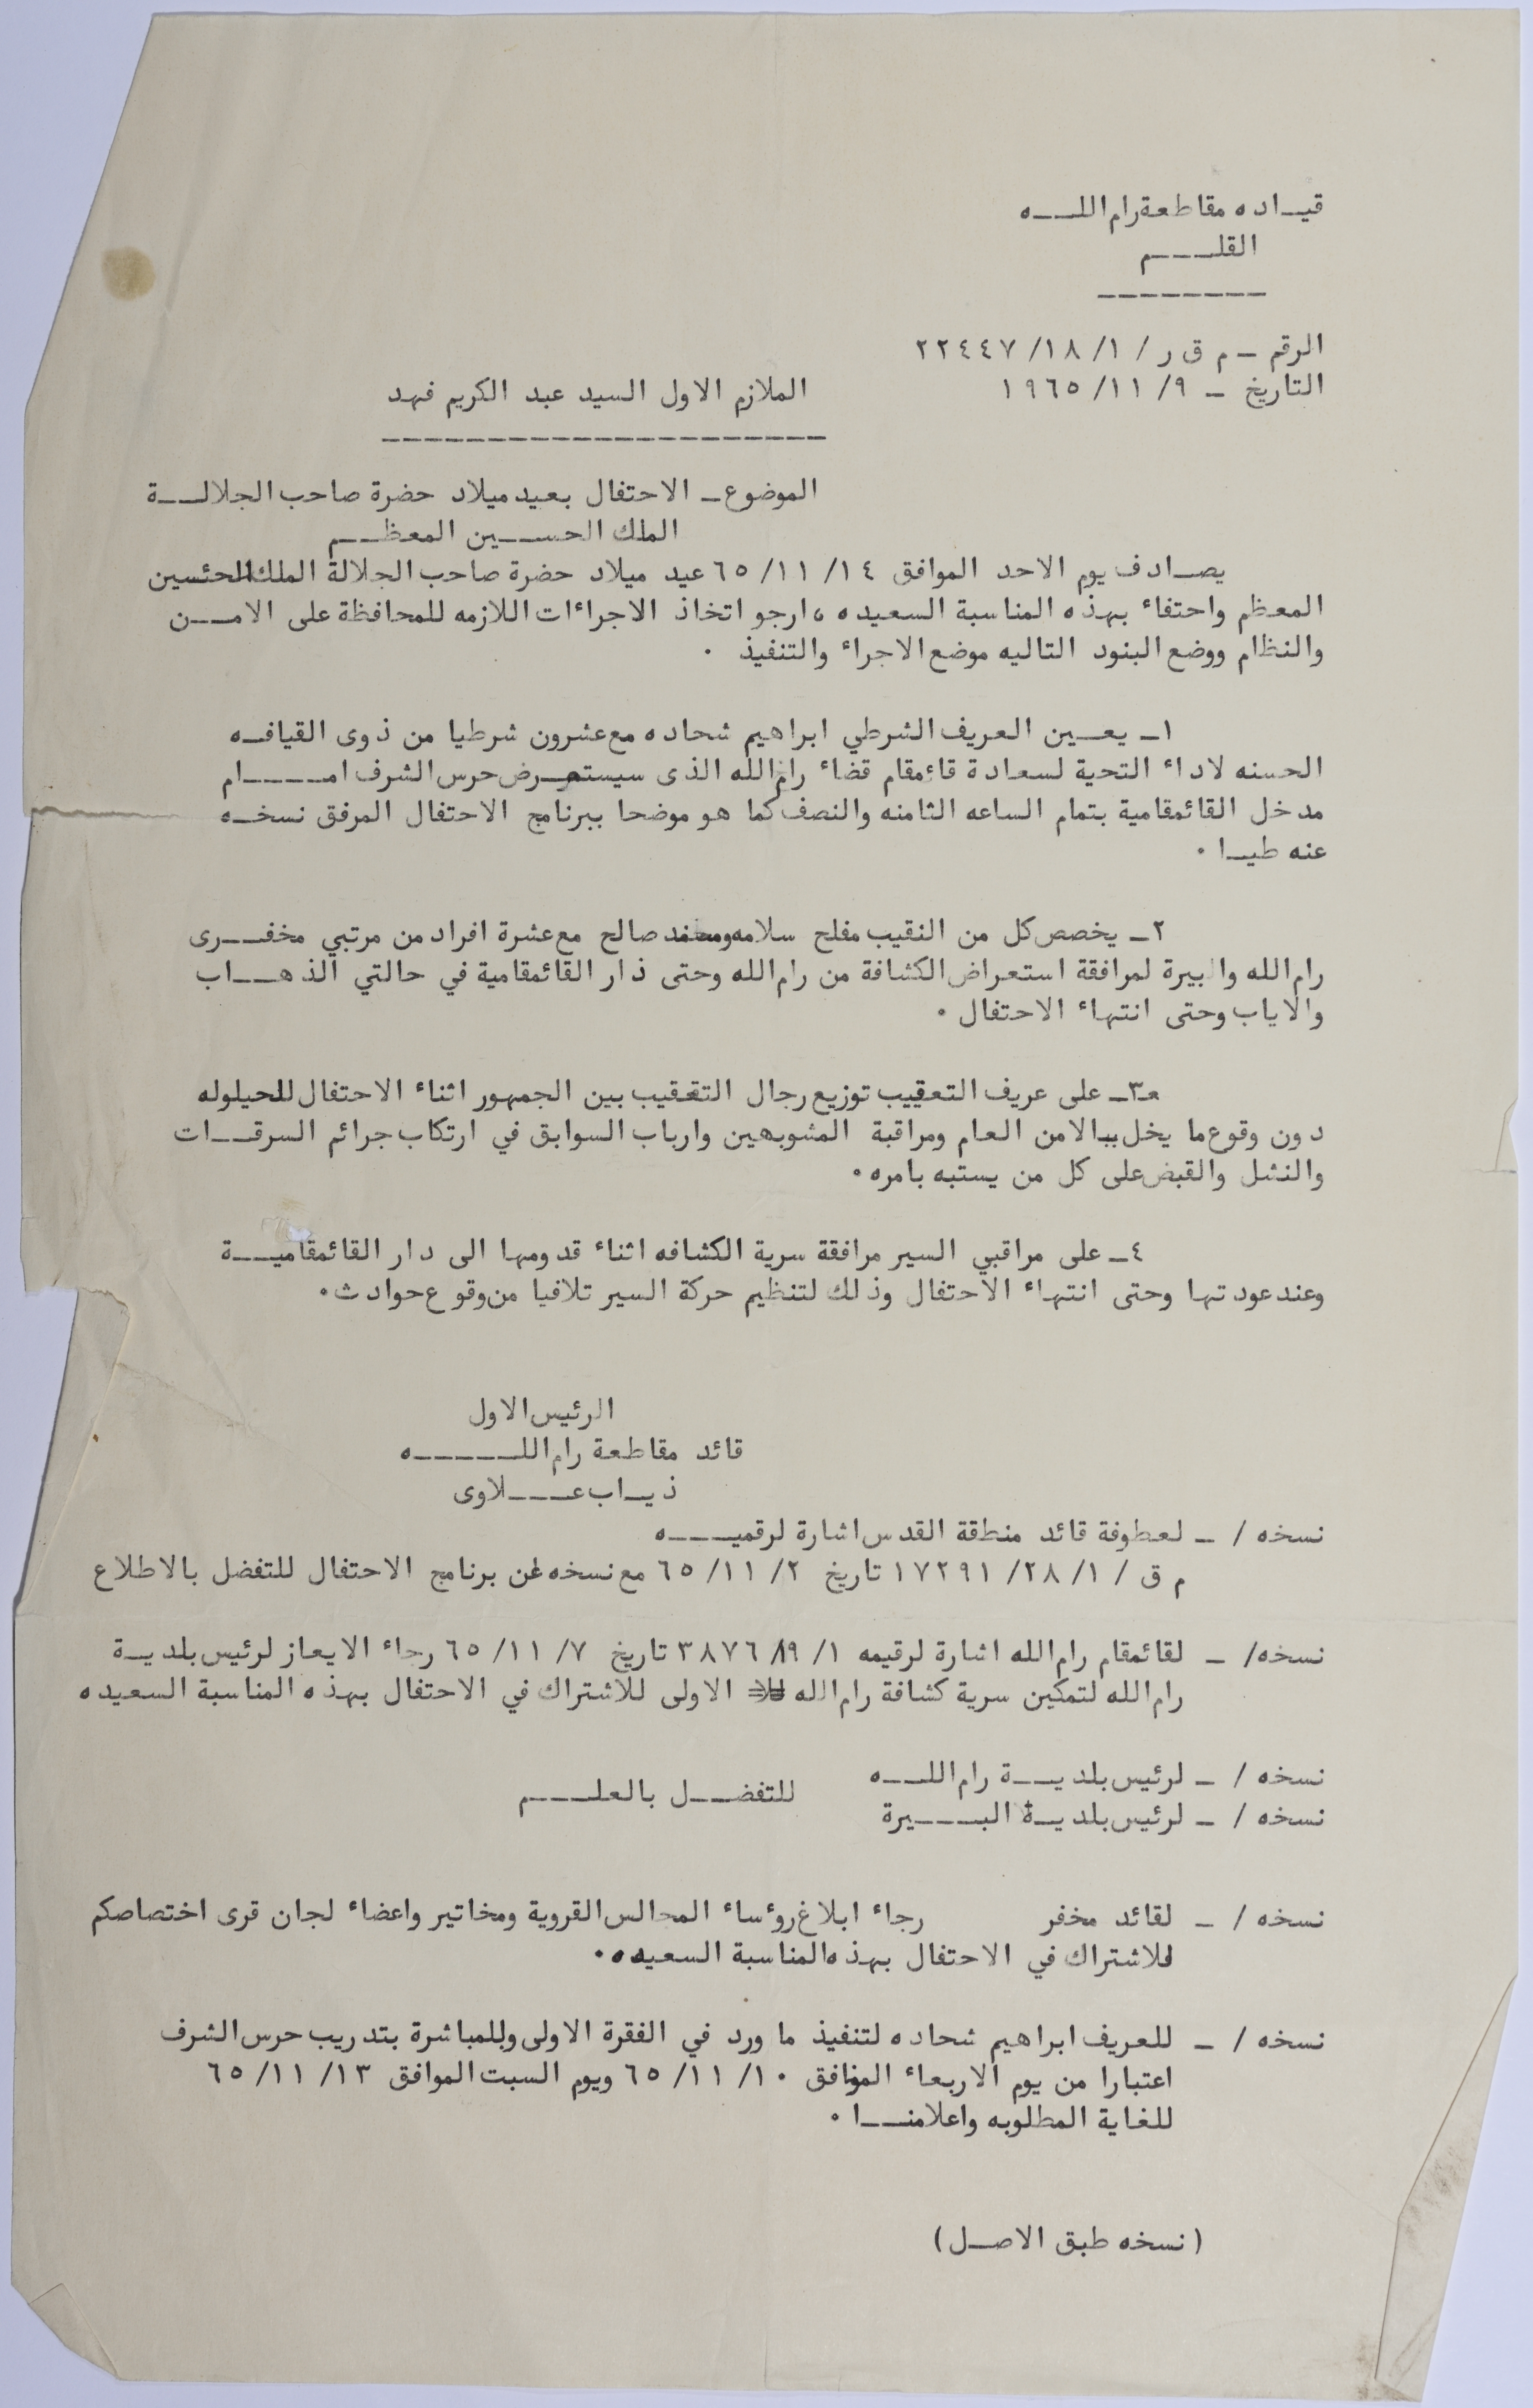 قيـاده مقاطعة رام اللــه
القلــــم
ـ ـ ـ ـ ـ ـ ـ ـ
الرقم ـ م ق ر / ١/ ١٨/ ٢٢٤٤٧
التاريخ ـ ٩/ ١١/ ١٩٦٥
الملازم الاول السيد عبد الكريم فهد
ـ ـ ـ ـ ـ ـ ـ ـ ـ ـ ـ ـ ـ ـ ـ ـ ـ ـ ـ ـ ـ
الموضوع ـ الاحتفال بعيد ميلاد حضرة صاحب الجلالــة
الملك الحســين المعظــم
يصـادف يوم الاحد الموافق ١٤/ ١١/ ٦٥ عيد ميلاد حضرة صاحب الجلالة الملك الحسين
المعظم واحتفاء بهذه المناسبة السعيده ، ارجو اتخاذ الاجراءات اللازمه للمحافظة على الامــن
والنظام ووضع البنود التاليه موضع الاجراء والتنفيذ .
١ـ يعــين العريف الشرطي ابراهيم شحاده مع عشرون شرطيا من ذوى القيافـه
الحسنه لاداء التحية لسعادة قائمقام قضاء رام الله الذى سيستعـرض حرس الشرف امــــام
مدخل القائمقامية بتمام الساعه الثامنه والنصف كما هو موضحا ببرنامج الاحتفال المرفق نسخـه
عنه طيـا .
٢ـ يخصص كل من النقيب مفلح سلامه ومحمد صالح مع عشرة افراد من مرتبي مخفــرى
رام الله والبيرة لمرافقة استعراض الكشافة من رام الله وحتى دار القائمقامية في حالتي الذهــاب
والاياب وحتى انتهاء الاحتفال .
٣ـ على عريف التعقيب توزيع رجال التعقيب بين الجمهور اثناء الاحتفال للحيلوله
دون وقوع ما يخل بالامن العام ومراقبة المشوبهين وارباب السوابق في ارتكاب جرائم السرقــات
والنشل والقبض على كل من يستبه بامره .
٤ـ على مراقبي السير مرافقة سرية الكشافه اثناء قدومها الى دار القائمقاميــة
وعند عودتها وحتى انتهاء الاحتفال وذلك لتنظيم حركة السير تلافيا من وقوع حوادث .
الرئيس الاول
قائد مقاطعة رام اللـــــه
ذيـاب عـــلاوى
نسخه / ـ لعطوفة قائد منطقة القدس اشارة لرقميــه
م ق / ١/ ٢٨/ ١٧٢٩١ تاريخ ٢/ ١١/ ٦٥ مع نسخه عن برنامج الاحتفال للتفضل بالاطلاع
نسخه/ ـ لقائمقام رام الله اشارة لرقيمه ١/ ١٩/ ٣٨٧٦ تاريخ ٧/ ١١/ ٦٥ رجاء الايعاز لرئيس بلديـة
رام الله لتمكين سرية كشافة رام الله الاولى للاشتراك في الاحتفال بهذه المناسبة السعيده
نسخه / ـ لرئيس بلديــة رام اللــه
للتفضــل بالعلـــم
نسخه / ـ لرئيس بلديـة البــــيرة
نسخه / ـ لقائد مخفر رجاء ابلاغ روءساء المجالس القروية ومخاتير واعضاء لجان قرى اختصاصكم
للاشتراك في الاحتفال بهذه المناسبة السعيده .
نسخه / ـ للعريف ابراهيم شحاده لتنفيذ ما ورد في الفقرة الاولى وللمباشرة بتدريب حرس الشرف
اعتبارا من يوم الاربعاء الموافق ١٠/ ١١/ ٦٥ ويوم السبت الموافق ١٣/ ١١/ ٦٥
للغاية المطلوبه واعلامنــا .
(نسخه طبق الاصـل)